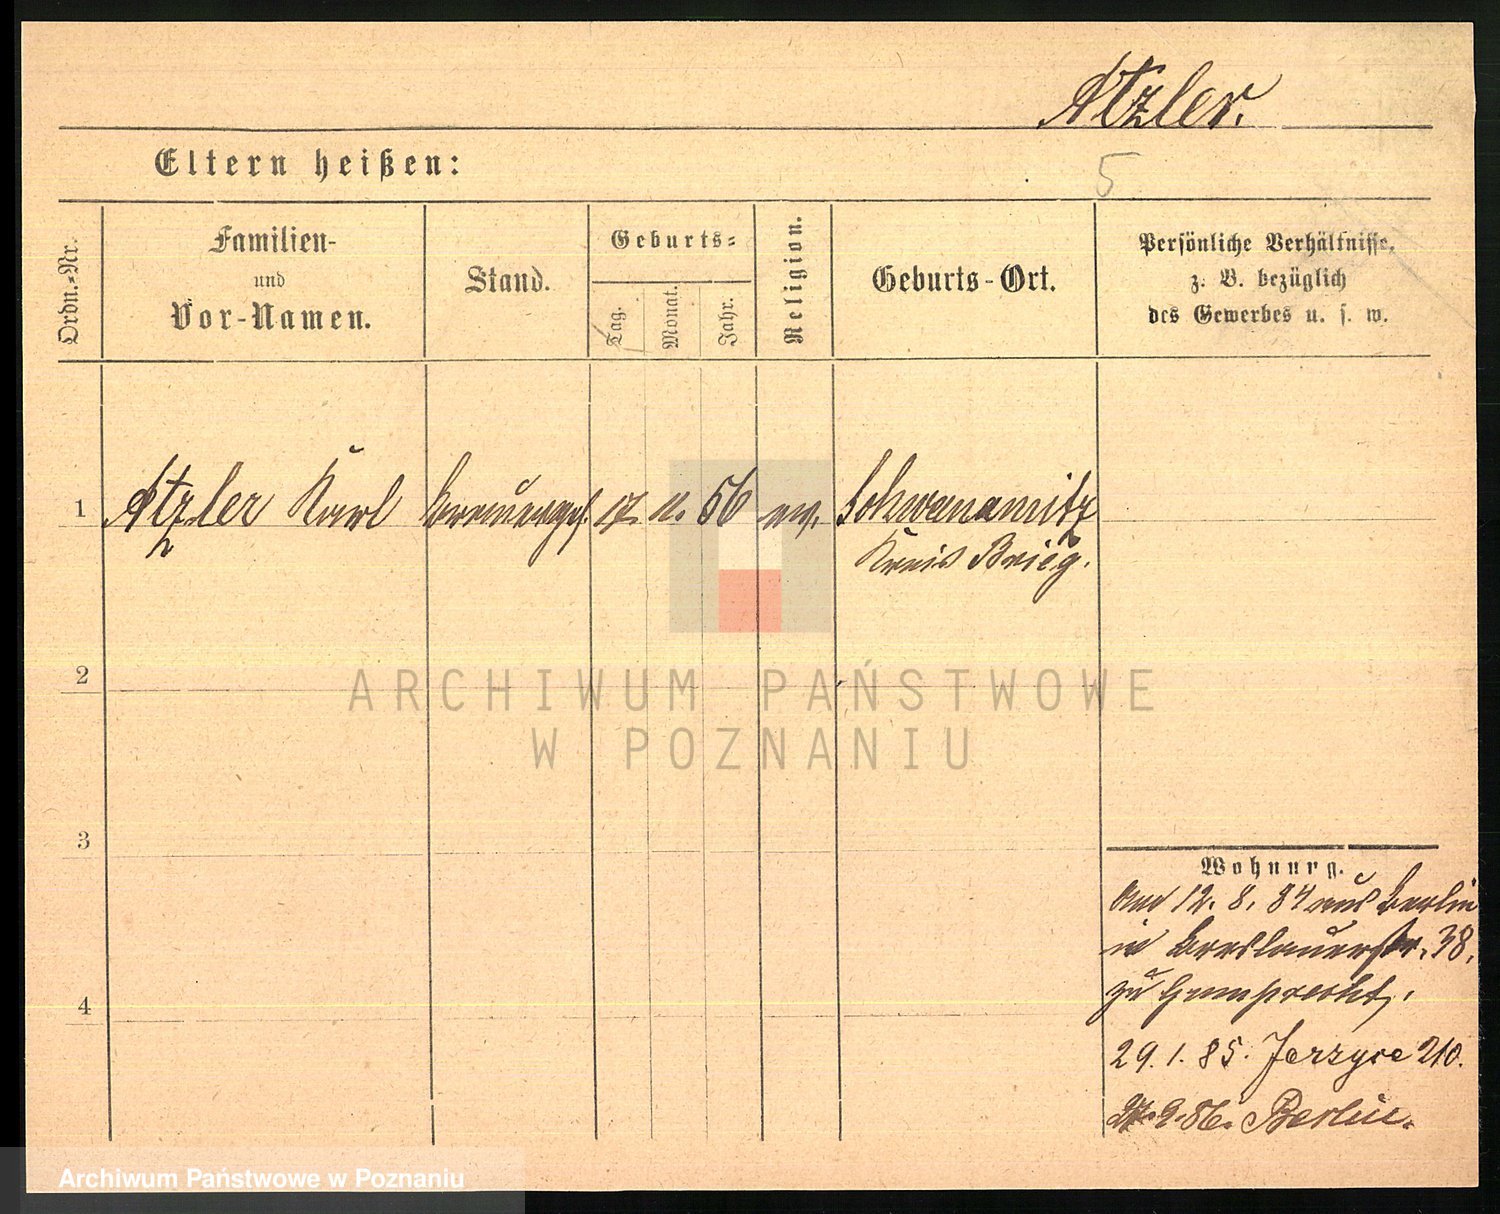 Atzler.
Eltern heißen:
5
Ordn.-Nr.
Familien-
und
Vor-Namen.
Stand.
Geburts-
Tag.
Monat.
Jahr.
Religion.
Geburts-Ort.
Persönliche Verhältnisse,
z. B. bezüglich
des Gewerbes u. s. w.
1 Atzler Karl 17. 11. 56 ev. Schwanamitz
Kreis Brieg.
2
ARCHIWUM PAŃSTWOWE
W POZNANIU
3
4
Wohnung.
Am 12. 8. 84 aus Berlin
in Breslauerstr. 38.
zu Gumprecht.
29. 1. 85. Jerzyce 210.
9. 86. Berlin.
Archiwum Państwowe w Poznaniu